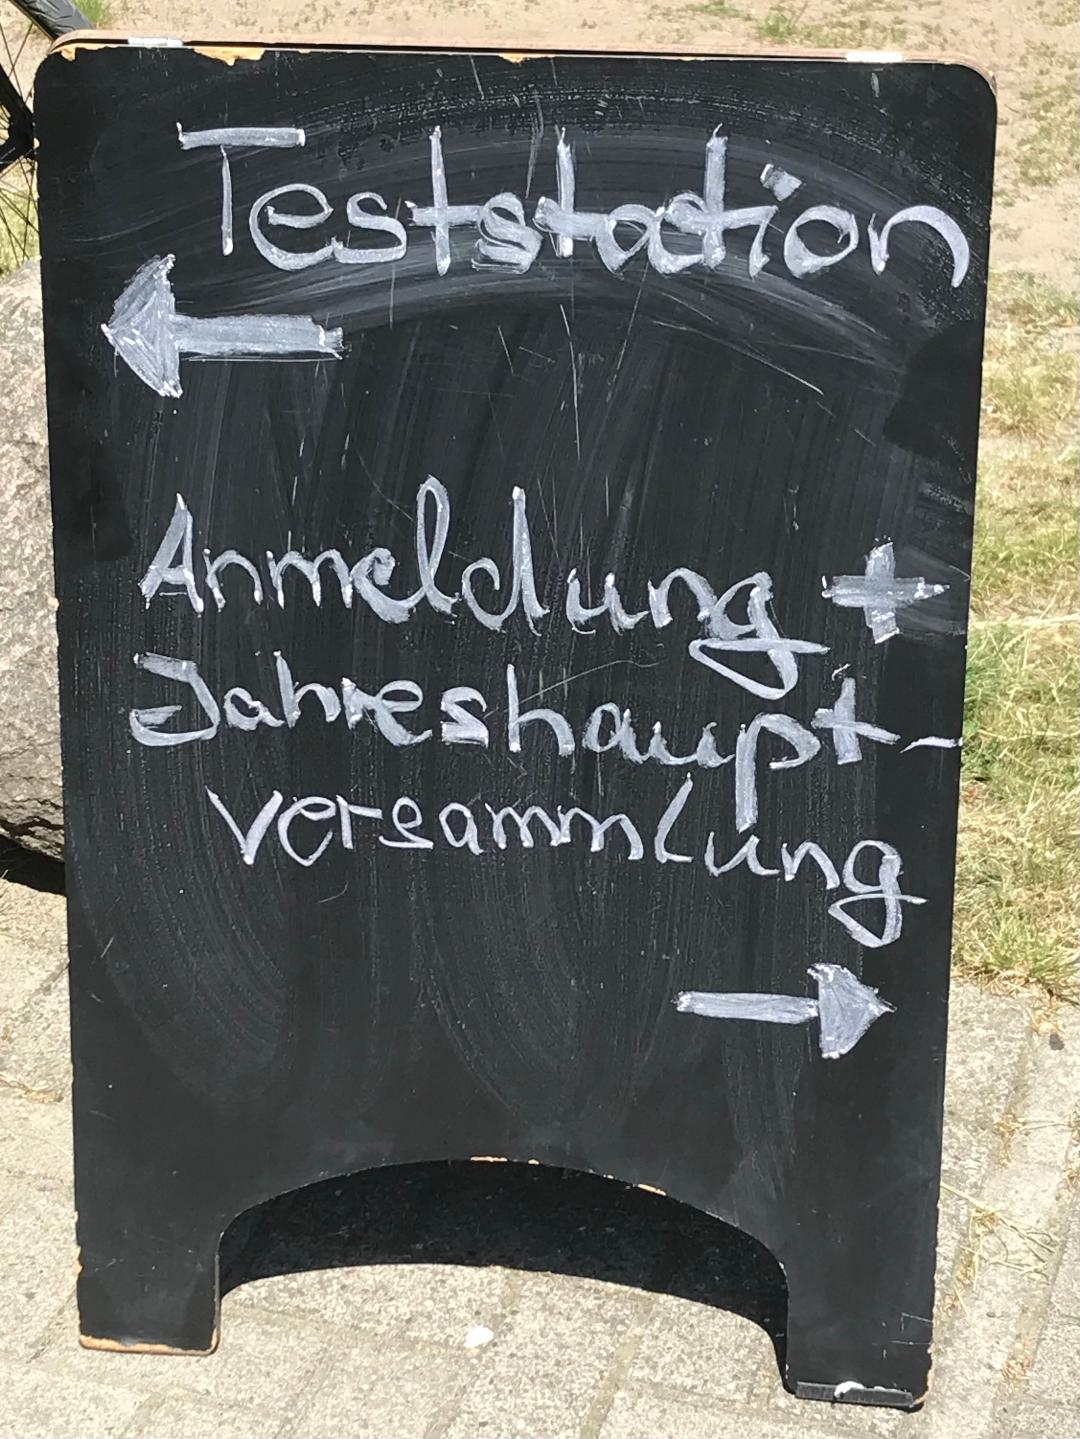 Teststation
←
Anmeldung +
Jahreshaupt-
versammlung
→